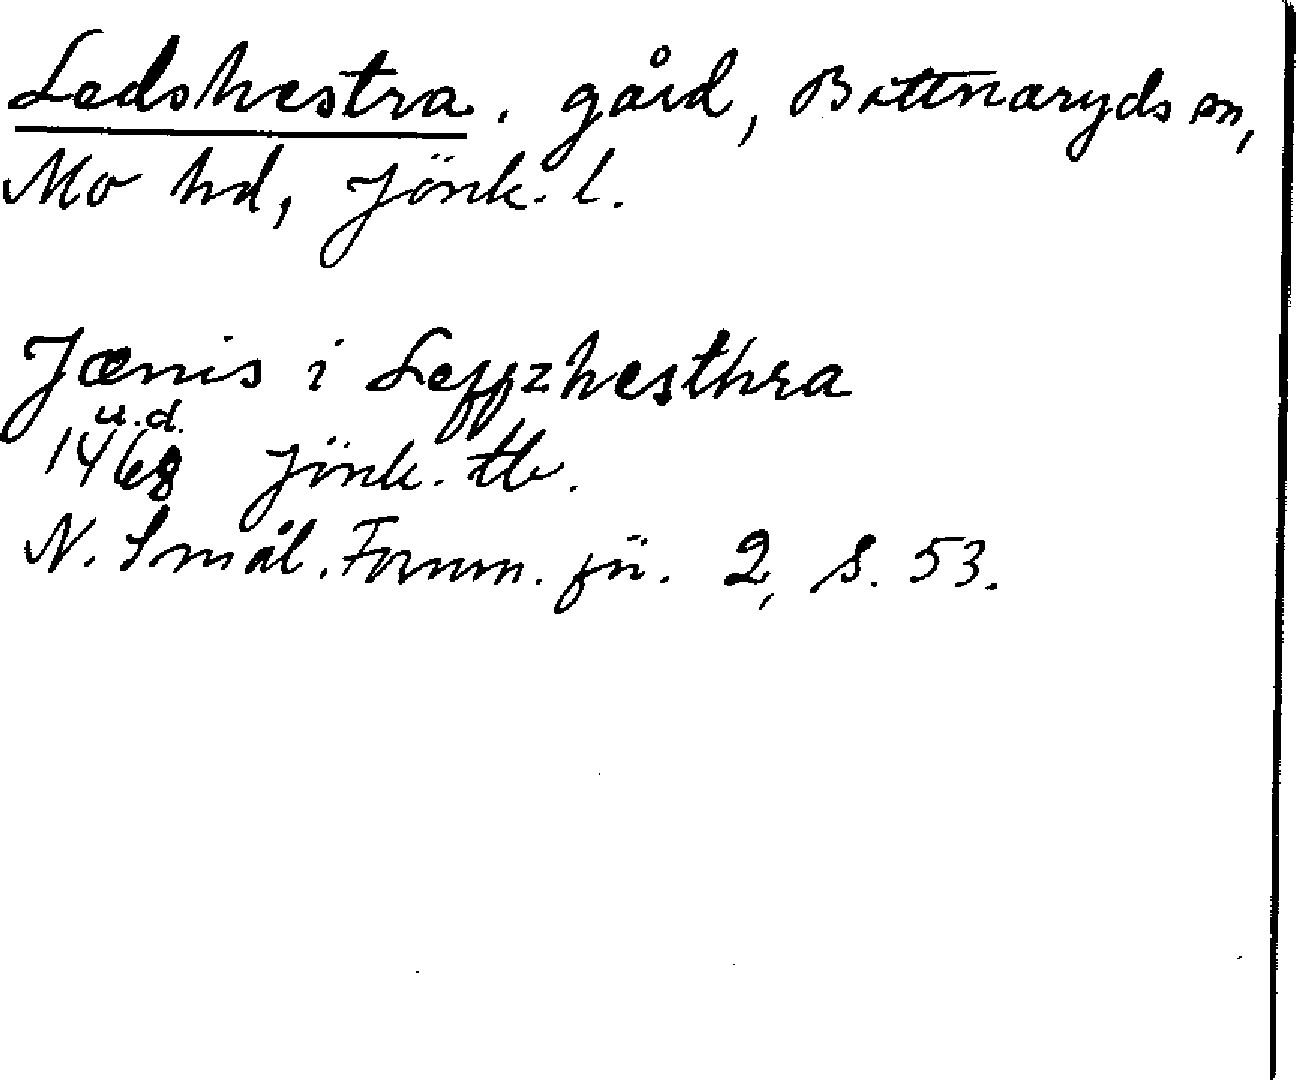 Ledshestra. gård, Bottnaryds sn,
Mo hd, Jönk. l.
Jænis i Leffzhesthra
u.d.
1468 Jönk. tb.
N. Smål. Fornm. fn. 2, S. 53.